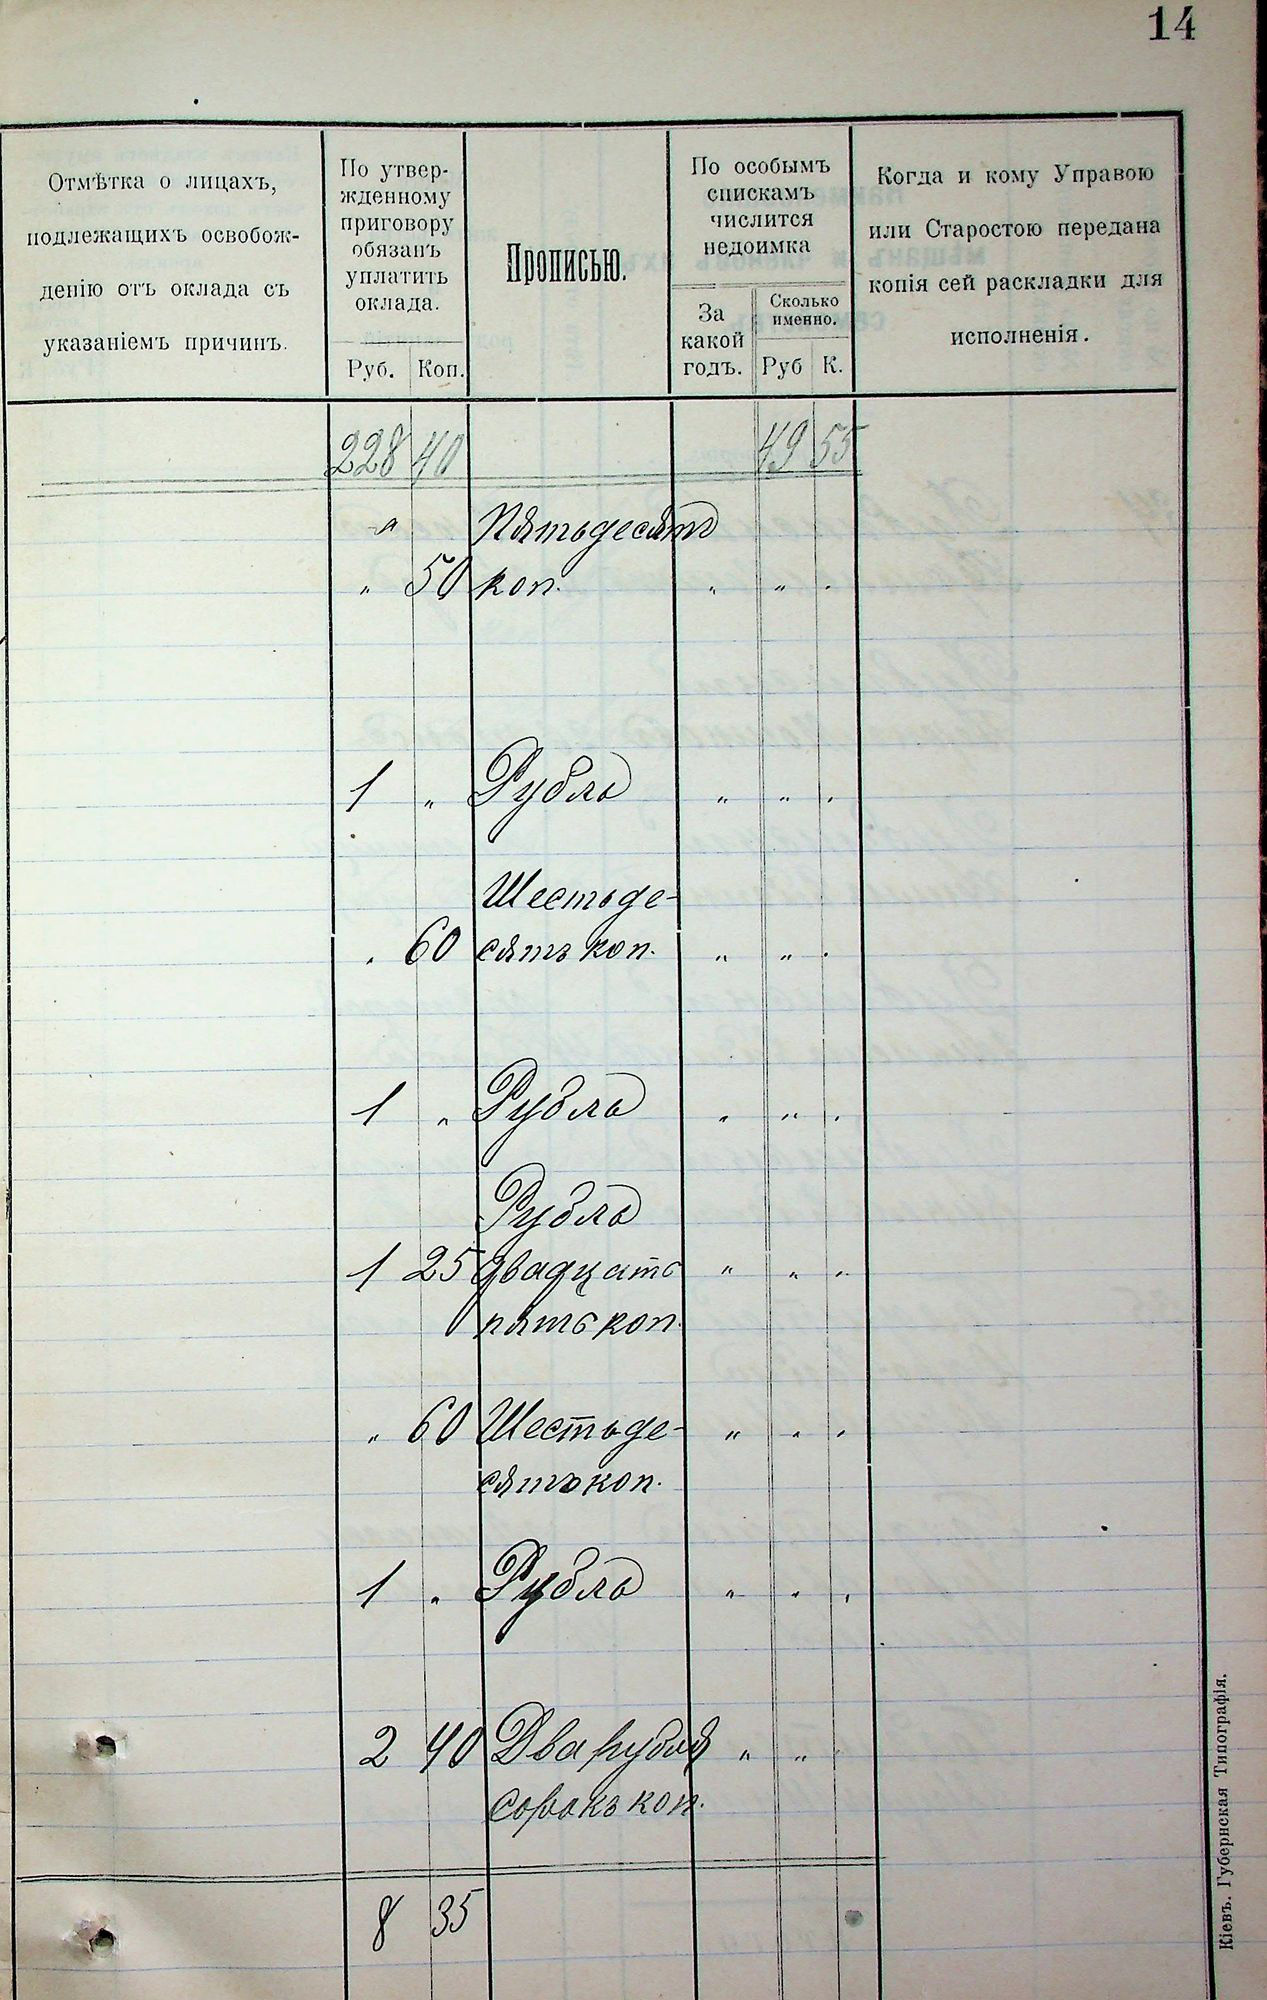 14
Отмѣтка о лицахъ,
подлежащихъ освобож-
денію отъ оклада съ
указаніемъ причинъ.
По утвер-
жденному
приговору
обязанъ
уплатить
оклада.
Руб. Коп.
Прописью.
По особымъ
спискамъ
числится
недоимка
За
какой
годъ.
Сколько
именно.
Руб К.
Когда и кому Управою
или Старостою передана
копія сей раскладки для
исполненія.
228 40 49 55
" Пятьдесятъ
" 50 коп. " " "
1 " Рубль " " "
Шестьде-
" 60 сятъ коп. " " "
1 " Рубль " " "
Рубль
1 25 двадцать " " "
пять коп.
" 60 Шестьде- " " "
сятъ коп.
1 " Рубль " " "
2 40 Два рубля " " "
сорокъ коп.
8 35
Кіевъ. Губернская Типографія.